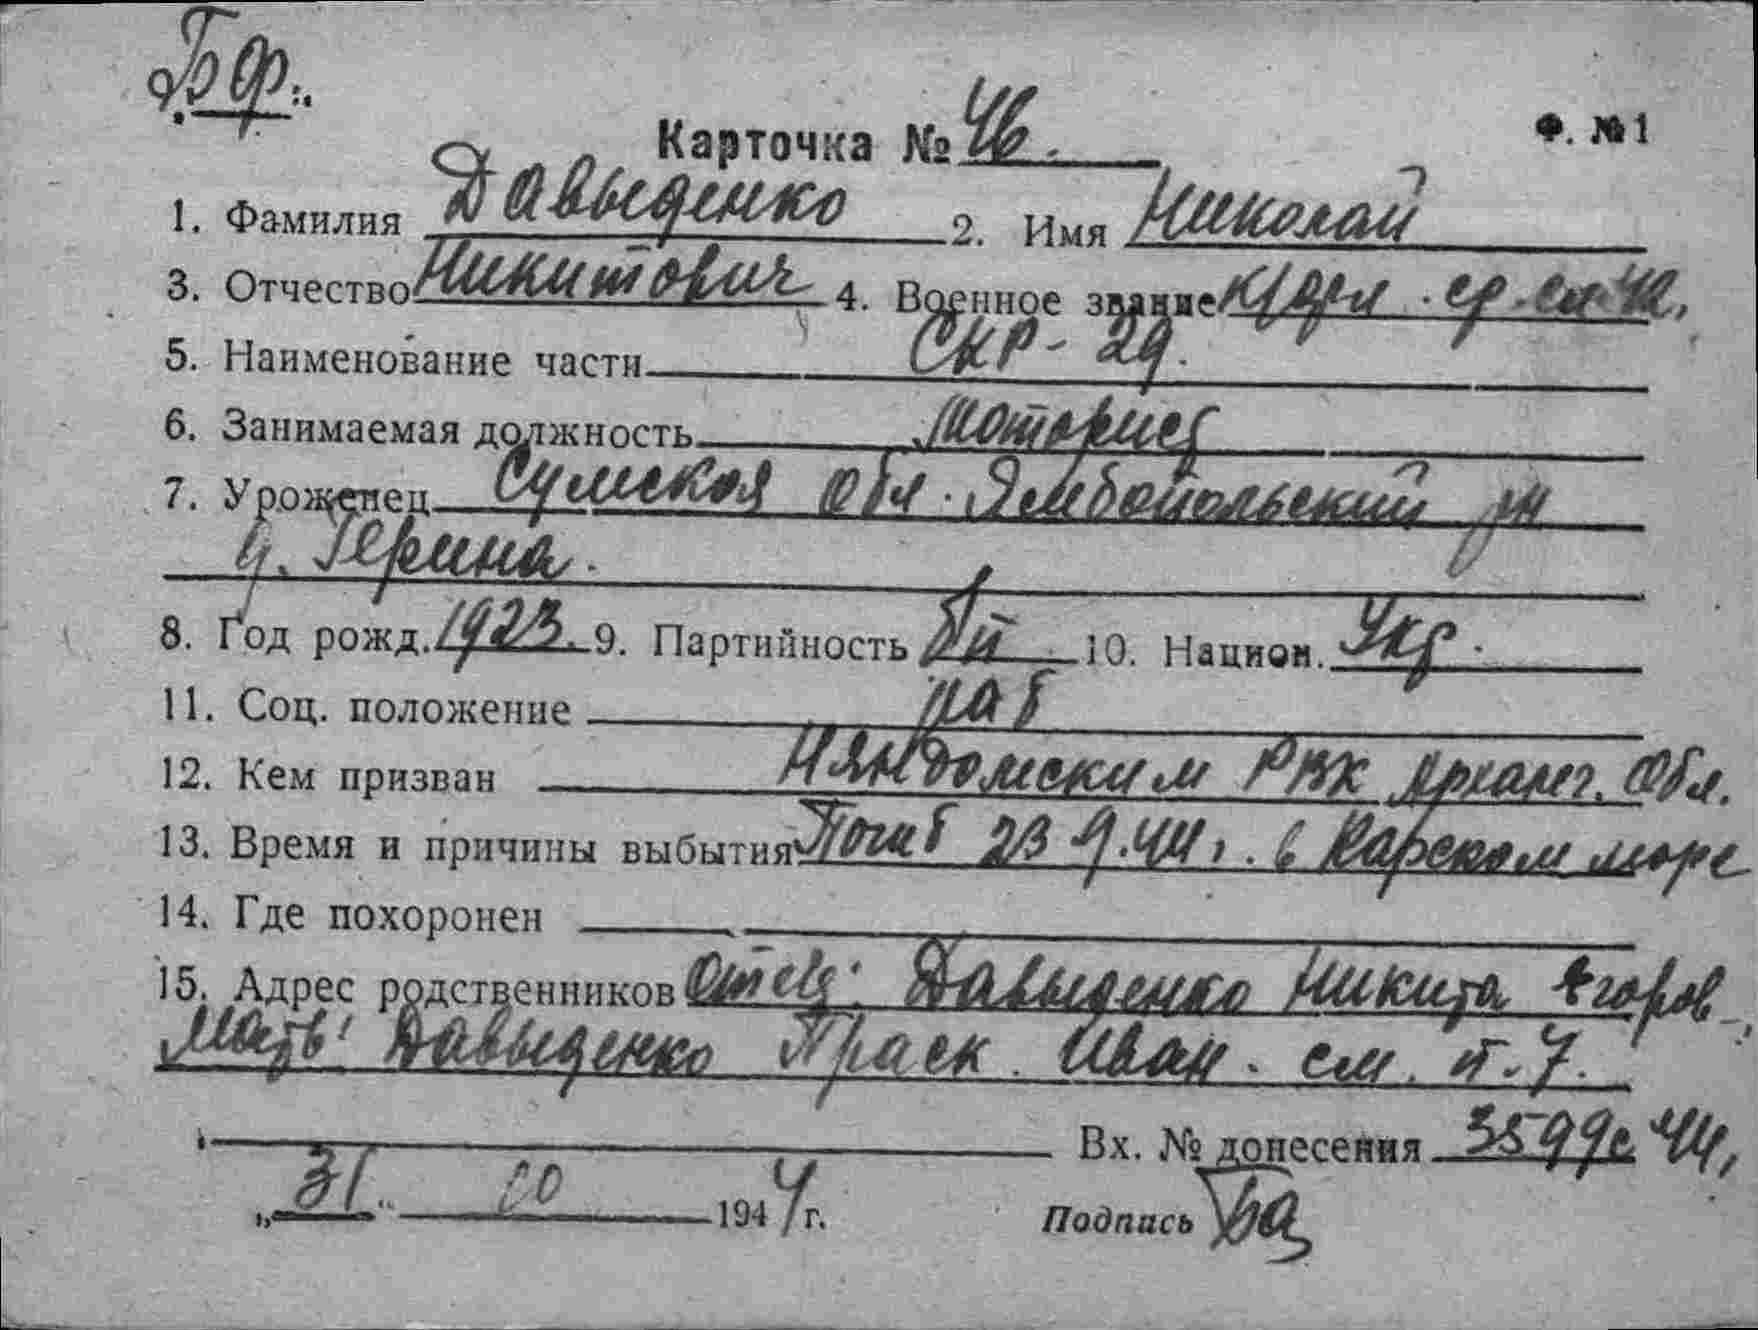 БФ.
Карточка № 46. Ф. №1
1. Фамилия Давыденко 2. Имя Николай
3. Отчество Никитович 4. Военное звание
5. Наименование части СКР - 29.
6. Занимаемая должность моторист
7. Уроженец Сумская обл. Ямбопольский рн
д.
8. Год рожд. 1923. 9. Партийность бп 10. Национ. Укр.
11. Соц. положение раб
12. Кем призван Няндомским РВК Арханг. Обл.
13. Время и причины выбытия Погиб 23 9.44 г. в Карском море
14. Где похоронен
15. Адрес родственников Отец: Давыденко Никита Егоров
Мать: Давыденко Праск. Иван. см. п. 7.
Вх. № донесения 3599с 44
„31" 10 1944 г. Подпись